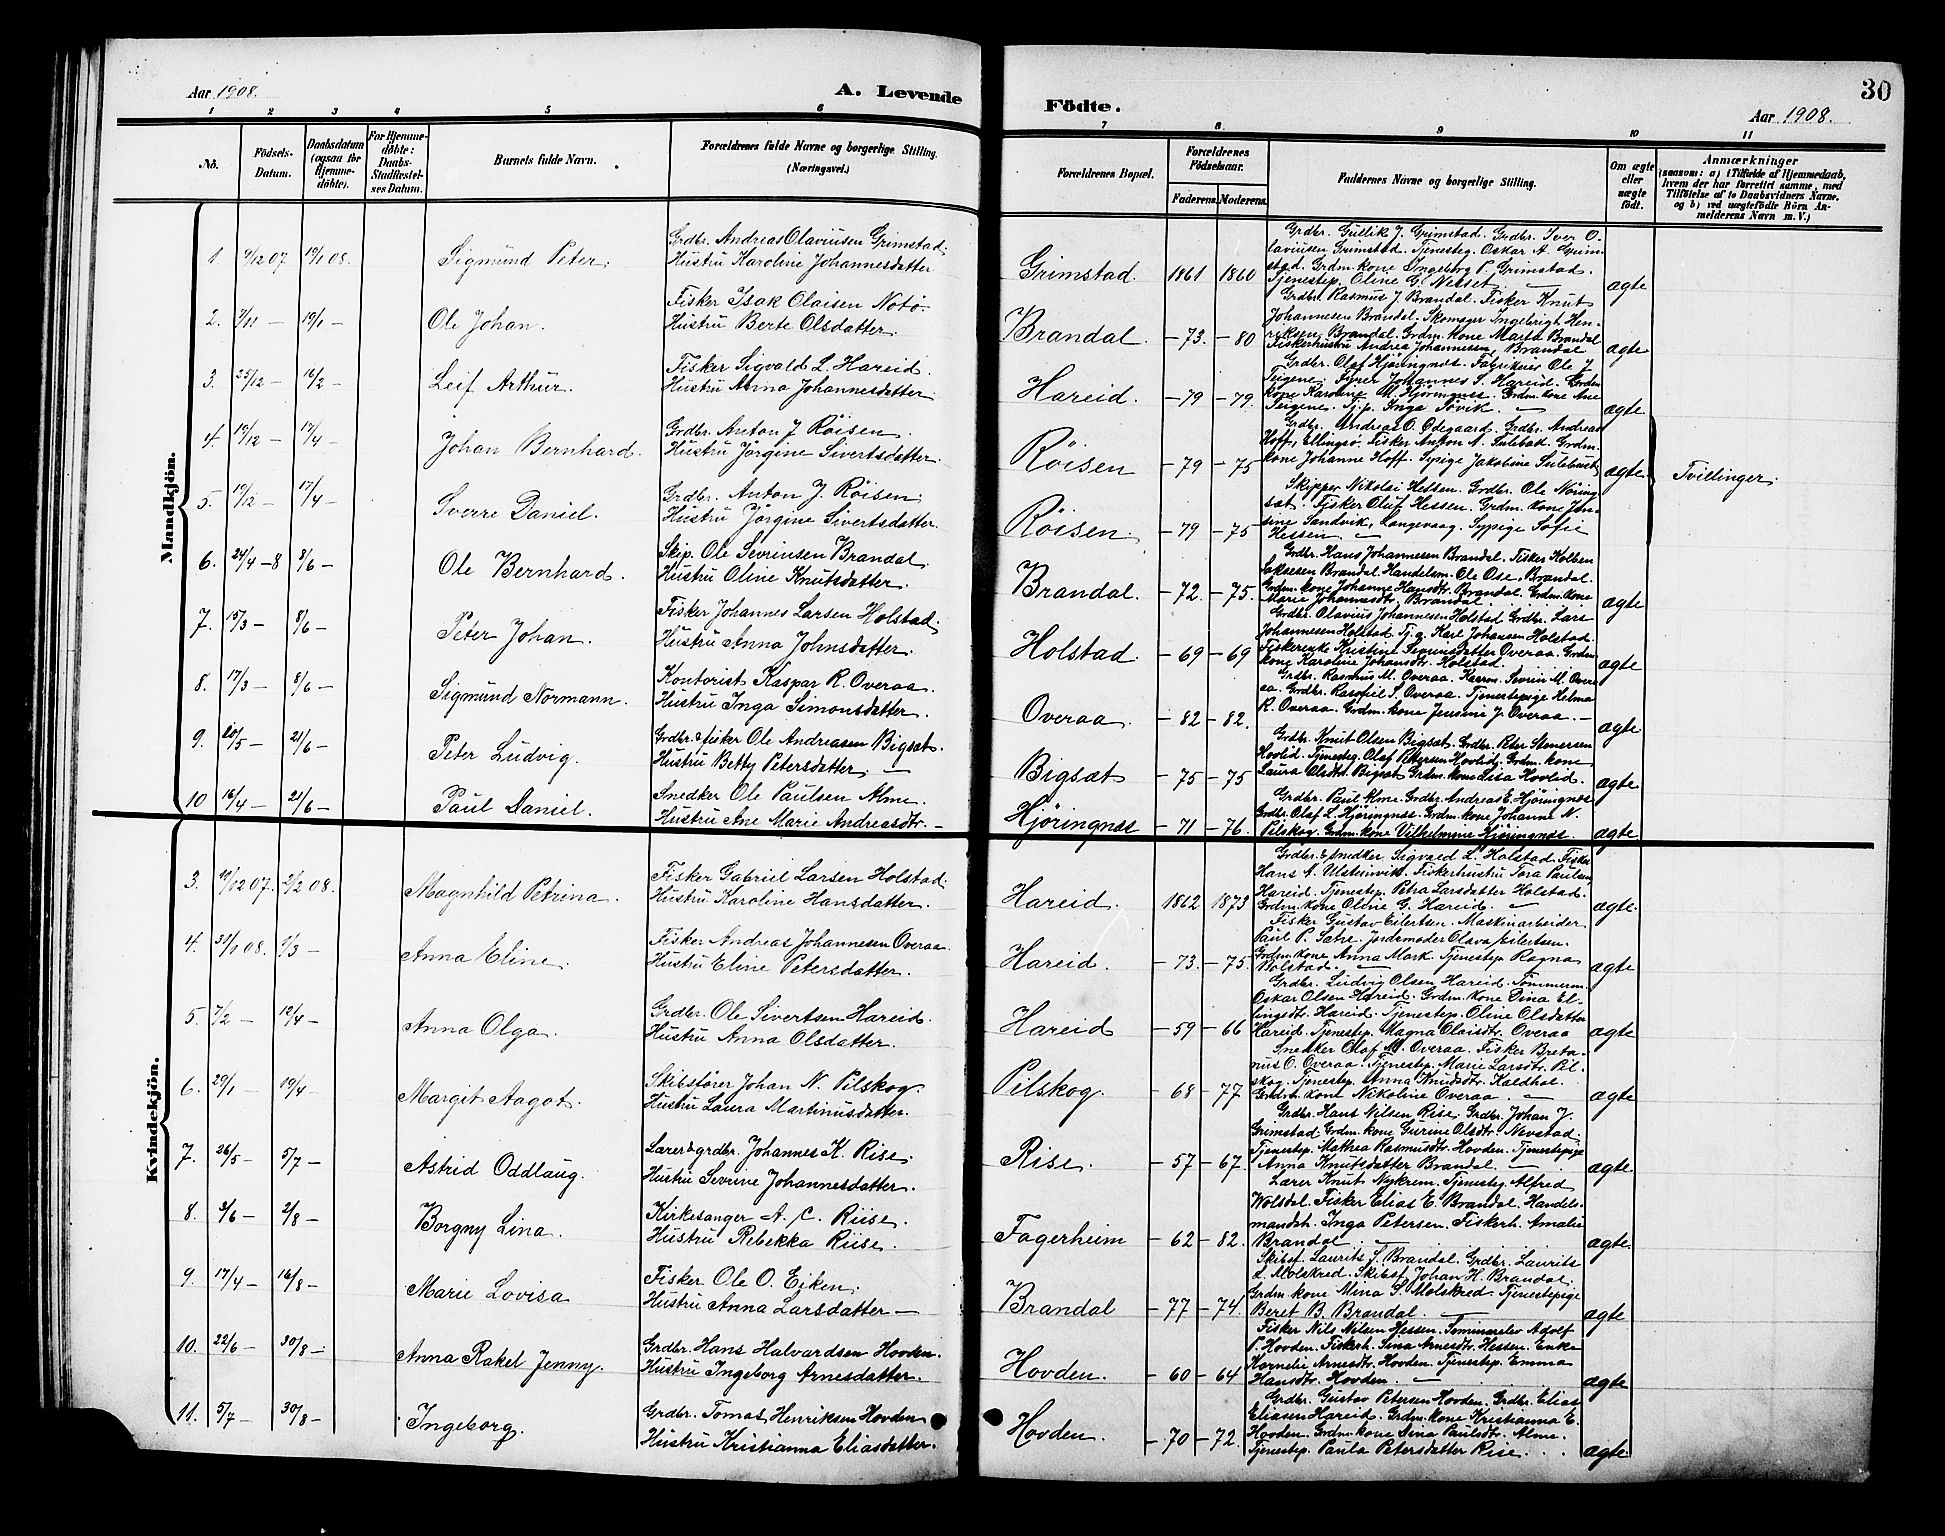 Aar 1908.
A. Levende
Födte.
30
Aar 1908.
1 2 3 4 5 6 7 8 9 10 11
No.
Födsels-Datum.
Daabsdatum (ogsaa for Hjemme-döbte).
For Hjemme-döbte: Daabs-Stadfæstel-ses Datum.
Barnets fulde Navn.
Forældrenes fulde Navne og borgerlige Stilling. (Næringsvei.)
Forældrenes Bopæl.
Forældrenes Födselsaar.
Faderens. Moderens.
Faddernes Navne og borgerlige Stilling.
Om ægte eller uægte födt.
Anmærkninger
(saasom: a) i Tilfælde af Hjemmedaab,
hvem der har forrettet samme, med
Tilföielse af to Daabsvidners Navne,
og b) ved uægtefödte Börn An-
melderens Navn m. V.)
Mandkjön.
Grdbr. Gullik J. Grimstad. Grdbr. Iver O-
Grdbr. Andreas Olaviusen Grimstad.
laviusen Grimstad. Tjenesteg. Oskar A. Grim-
1 9/12 07 19/1 08. Sigmund Peter. Hustru Karoline Johannesdatter
stad. Grdm.kone Ingeborg P. Grimstad.
Grimstad. 1861 1860 Tjenestep. Oline G. Nebset. — ægte
Fisker Isak Olaisen Notö.
Grdbr. Rasmus J. Brandal. Fisker Knut
2. 7/11 — 19/1 — Ole Johan. Hustru Berte Olsdatter.
Johannesen Brandal. Skomager Ingebrigt Hen-
Brandal. — 73. — 80 riksen Brandal. Grdm. kone Marta Brandal
Fiskerhustru Andrea Johannesen, Brandal ægte
Fisker Sigvald L. Hareid.
Grdbr. Olaf Hjöringnes. Fabrikeier Ole J.
3. 25/12 — 16/2 — Leif Arthur. Hustru Anna Johannesdatter.
Teigene. Fyrer Johannes S. Hareid. Grdm
Hareid. — 79 — 79. kone Karoline M. Hjöringnes. Grdm.kone Ane
Teigene. Tj.p. Inga Tovik. — ægte
Grdbr. Anton J. Röisen.
Grdbr. Andreas O. Ødegaard. Grdbr. Andreas
4. 19/12 — 17/4 — Johan Bernhard. Hustru Jörgine Sivertsdatter.
Hoff, Ellingsö. Fisker Anton A. Sulebak. Grdm.
Röisen — 79 — 75 kone Johanne Hoff. Sypige Jakobine Sulebust ægte
Tvillinger.
Grdbr. Anton J. Röisen.
Skipper Nikolai Hessen. Grdbr. Ole Nöring-
5. 19/12 — 17/4 — Sverre Daniel. Hustru Jörgine Sivertsdatter.
sæt. Fisker Oluf Hessen. Grdm.kone Jen-
Röisen. — 79 — 75 sine Sandvik, Langevaag. Sypige Sofie
Hessen —
Skip. Ole Sevrinsen Brandal.
Grdbr. Hans Johannesen Brandal. Fisker Kolben
6. 24/4 — 8 8/6 — Ole Bernhard. Hustru Oline Knutsdatter.
Isaksen Brandal. Handelsm. Ole Ose, Brandal.
Brandal. — 72. — 75. Grdm.kone Johanne Hansdtr. Brandal. Grdm.kone
Marie Johannesdtr. Brandal. ægte
Fisker Johannes Larsen Holstad.
Grdbr. Olavius Johannesen Holstad Grdbr. Lars
7. 15/3 — 8/6 — Peter Johan. Hustru Anna Johnsdatter.
Johannesen Holstad Tj.g. Karl Johansen Holstad.
Holstad. — 69 — 69 Fiskerenke Kristine Simonsdatter Overaa. Grdm
kone Karoline Johansdtr. Holstad. ægte
Kontorist Kaspar R. Overaa.
Grdbr. Rasmus M. Overaa. Sevrin M. Over-
8. 17/3 — 8/6 — Sigmund Normann. Hustru Inga Simonsdatter.
aa. Grdbr. Rasmus S. Overaa. Tjenestepige Helma
Overaa. — 82 — 82. R. Overaa. Grdm.kone Jensine J. Overaa. — ægte
Grdbr. & fisker Ole Andreasen Bigsæt.
Grdbr. Knut Olsen Bigsæt. Grdbr. Peter Stenersen
9. 20/5 — 21/6 — Peter Ludvig. Hustru Betty Petersdatter. —
Hovlid. Tjenesteg. Olaf Pettersen Hovlid. Grdm. kone
Bigsæt — 75 — 75 Laura Olsdtr. Bigsæt Grdm. kone Lisa Hovlid. ægte
Snedker Ole Paulsen Alme.
Grdbr. Paul Alme. Grdbr. Andreas E. Hjöringnes
10 16/4 — 21/6 — Paul Daniel. Hustru Ane Marie Andreasdtr. —
Grdbr. Olaf L. Hjöringnes. Grdm.kone Johanne N.
Hjöringnæs — 71 — 76. Pilskog. Grdm. kone Vilhelmine Hjöringnes. ægte
Kvindekjön.
Grdbr. & snedker Sigvald L. Holstad. Fisker
Fisker Gabriel Larsen Holstad.
Hans A. Ulsteinvik. Fiskerhustru Tora Paulsen,
3. 11/12 07. 2/2 08. Magnhild Petrina. Hustru Karoline Hansdatter.
Hareid. Tjenestep. Petra Larsdatter Holstad.
Hareid. 1862 1873 Grdm. kone Oline G. Hareid. — ægte.
Fisker Andreas Johannesen Overaa
Fisker Gustav Eilertsen. Maskinarbeider
4. 31/1 08. 1/3 — Anna Eline. Hustru Eline Petersdatter.
Paul P. Sætre. Jordemoder Olava Eilertsen.
Hareid. — 73. — 75. Grdm. kone Anna Mork. Tjenestep. Ragna
Holstad. — ægte
Grdbr. Ole Sivertsen Hareid.
Grdbr. Ludvig Olsen Hareid. Tömmerm.
5. 7/2 — 12/4 — Anna Olga. Hustru Anna Olsdatter.
Oskar Olsen Hareid. Grdm. kone Dina El-
lingsdt. Hareid. Tjenestep. Oline Olsdatter
Hareid — 59 — 66 Hareid. Tjenestep. Magna Olaisdtr. Overaa ægte
Skibsförer Johan N. Pilskog
Snedker Olaf M. Overaa. Fisker Breta-
6. 29/1 — 19/4 — Margit Aagot. Hustru Laura Martinusdatter.
nus O. Overaa. Tjenestep. Marie Larsdtr. Pil-
skog. Tjenestep. Anna Knudsdtr. Kaldhol.
Pilskog. — 68 — 77 Grdm. kone Nikoline Overaa. — ægte
Lærer & grdbr. Johannes K. Rise.
Grdbr. Hans Nilsen Rise. Grdbr. Johan J.
7. 26/5 — 5/7 — Astrid Oddlaug. Hustru Sevrine Johannesdatter.
Grimstad Grdm.kone Gurine Olsdtr. Nevstad.
Tjenestep. Mathea Rasmusdtr. Hovden. Tjenestepige
Rise. — 57 — 67. Anna Knutsdatter Brandal. — ægte
Kirkesanger A. C. Riise.
Lærer Knut Nykrem. Tjenesteg. Alfred
8. 3/6 — 2/8 — Borgny Lina. Hustru Rebekka Riise.
Wolsdal. Fisker Elias E. Brandal. Handels-
mandsh. Inga Petersen. Fiskerh. Amalie
Fagerheim — 62 — 82. Brandal. — ægte.
Fisker Ole O. Eiken.
Skibsf. Laurits S. Brandal. Grdbr. Laurits
9. 17/4 — 16/8 — Marie Lovisa Hustru Anna Larsdatter —
L. Molskred. Skibsf. Johan H. Brandal.
Grdm.kone Mina S. Molskred. Tjenestepige
Brandal — 77 — 74. Beret B. Brandal. — ægte
Grdbr. Hans Halvardsen Hovden.
Fisker Nils Nilsen Hessen. Seminarelev Adolf
10. 22/6 — 30/8 — Anna Rakel Jenny. Hustru Ingeborg Arnesdatter.
P. Hovden. Fiskerh. Sina Arnesdtr. Hessen. Enke
Kornelie Arnesdtr. Hovden. Tjenestep. Emma
Hovden. — 60 — 64 Hansdtr. Hovden. — ægte
Grdbr. Tomas Henriksen Hovden
Grdbr. Gustav Petersen Hovden. Grdbr. Elias
11. 5/7 — 30/8 — Ingeborg. Hustru Kristianna Eliasdatter.
Eliasen Hareid. Grdm.kone Kristianna E.
Hovden. Grdm.kone Sina Paulsdtr. Alme.
Hovden. — 70 — 72. Tjenestep. Paula Petersdatter Rise. ægte.